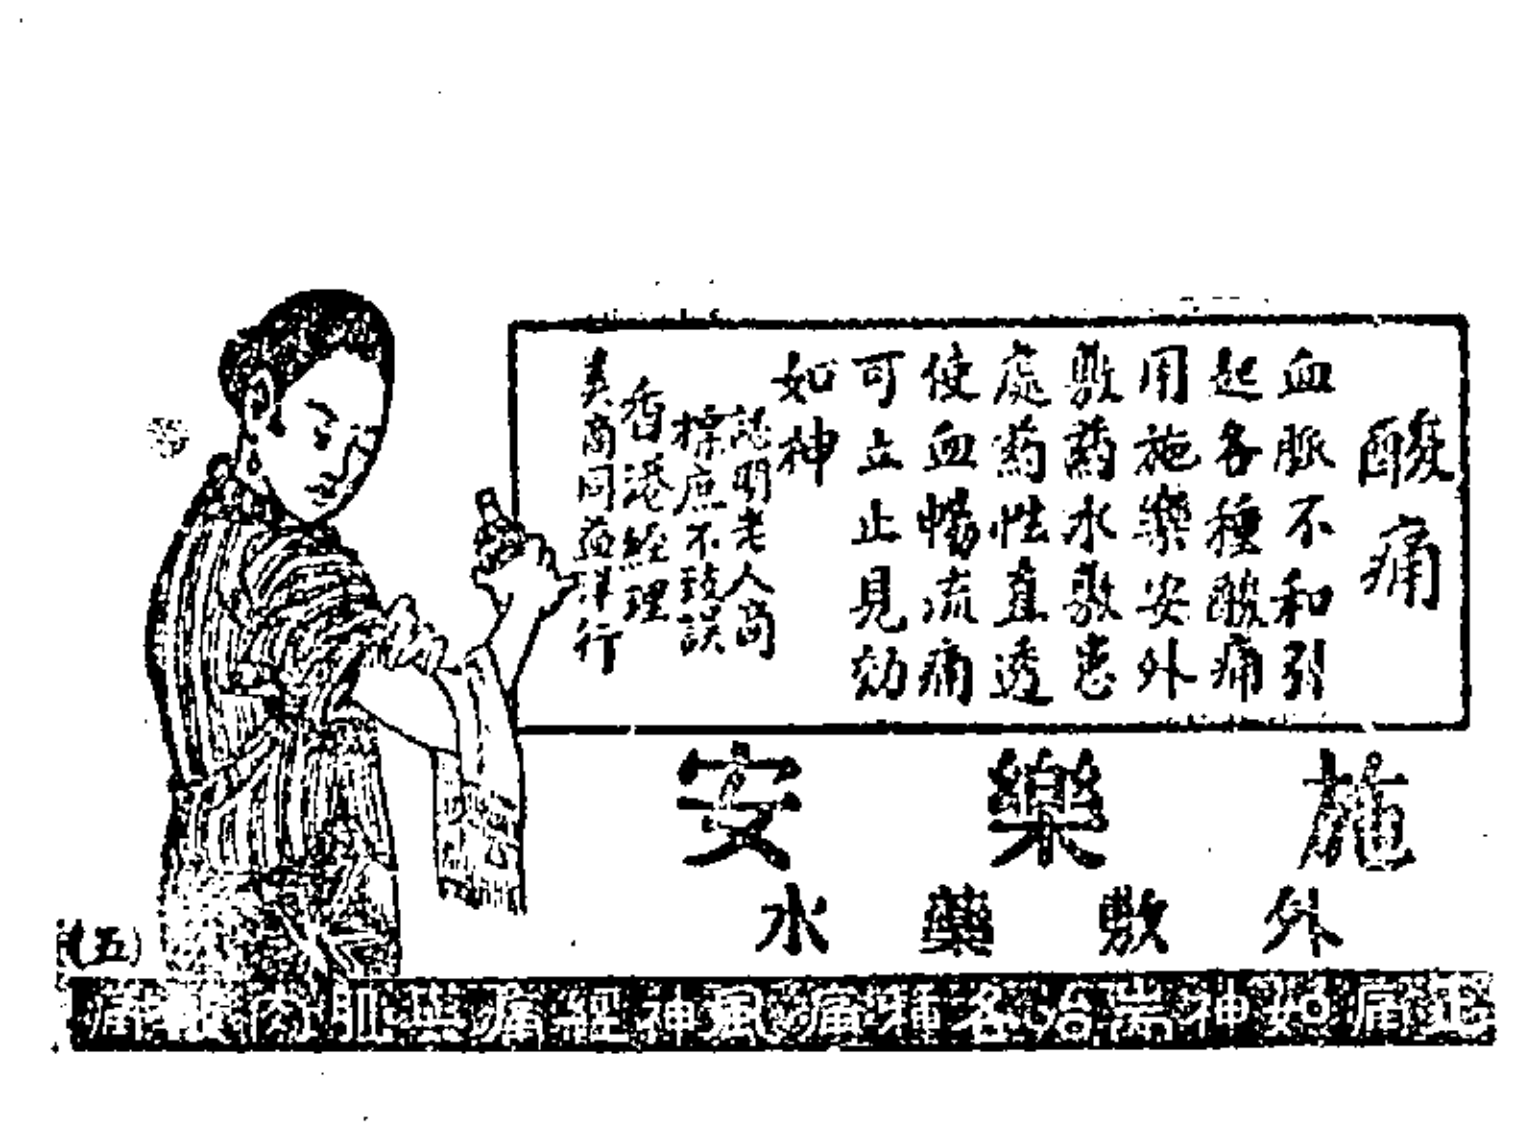 酸痛
血脈不和引
起各種酸痛
用施樂安外
敷藥水敷患
處药性直透
使血暢流痛
可立止見効
如神
認明老人商
標庶不致誤
香港經理
美商同益洋行
施樂安
外敷藥水
止痛如神耑治各種痛風神經痛與肌肉酸痛
(五)